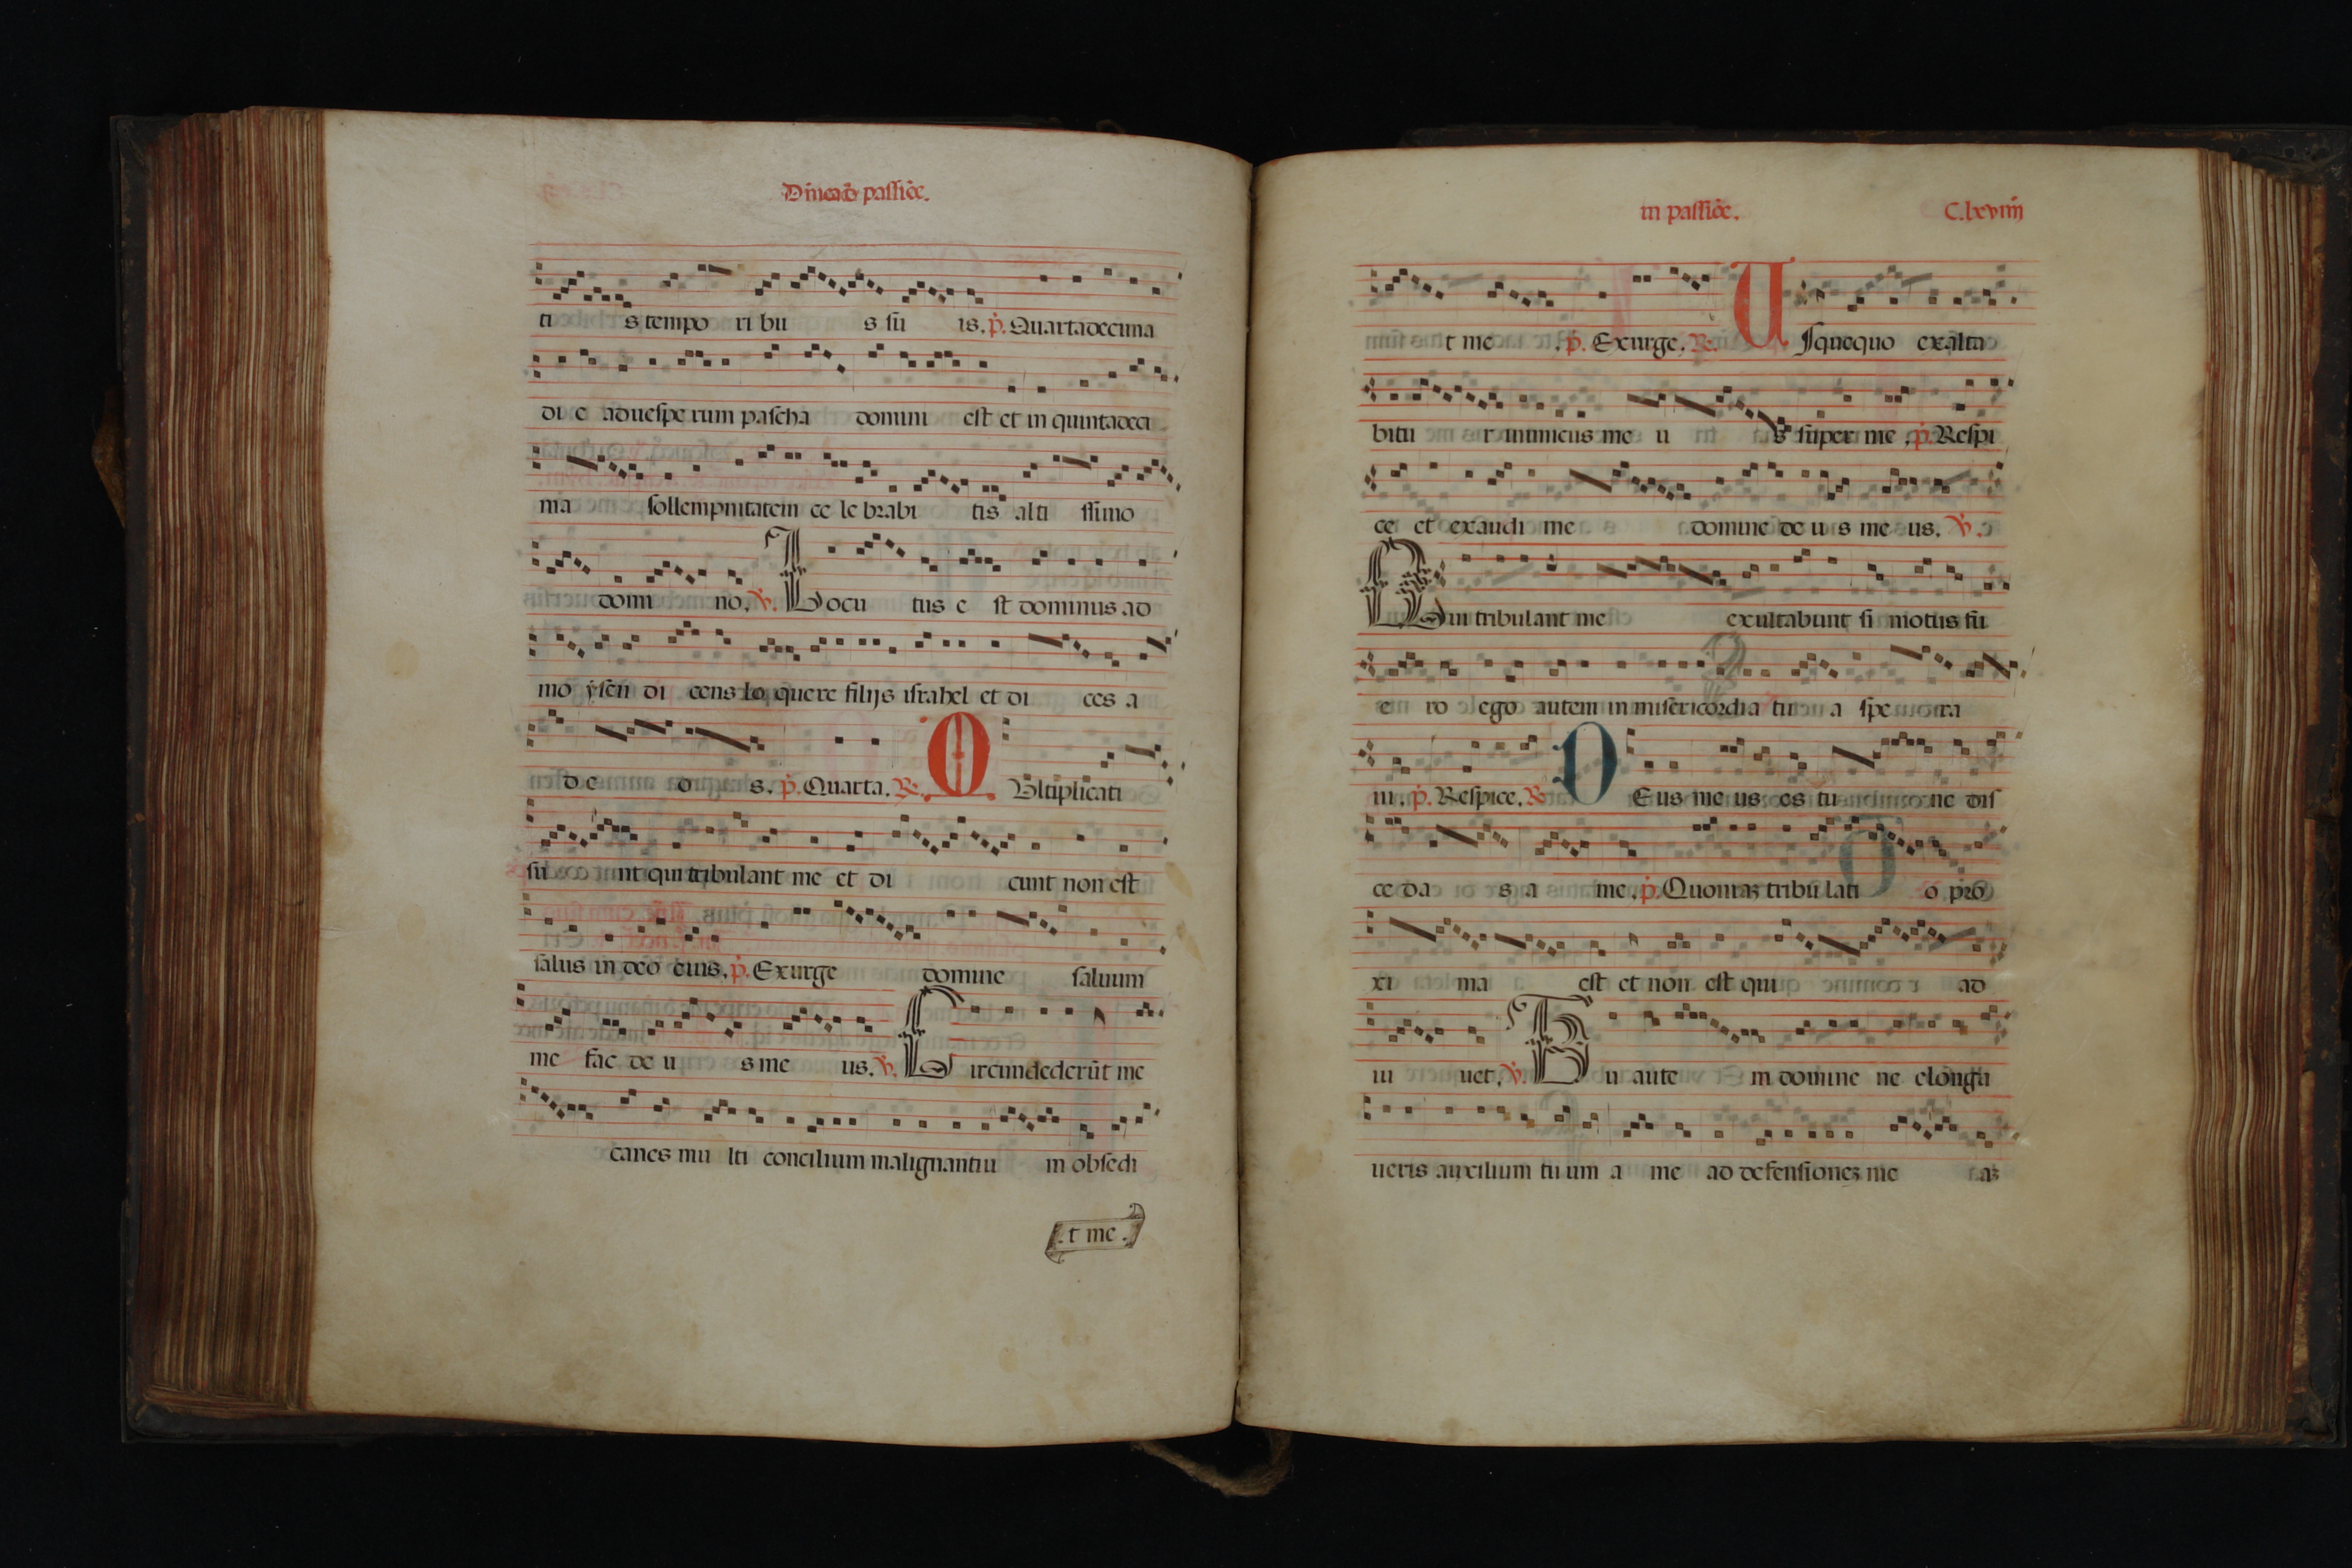 Dn̄ica de passiōe.
ti s tempo ri bu s su is. p̄. Quartadecima
di e ad uespe rum pascha domini est et in quintadeci
ma sollempnitatem ce le brabi tis alti ssimo
domi no. v̄. Locu tus e st dominus ad
mo ysen di cens lo quere filijs israhel et di ces a
d e o s. p̄. Quarta. R. M Vltiplicati
su nt qui tribulant me et di cunt non est
salus in deo eius. p̄. Exurge domine saluum
me fac de u s me us. v̄. Circundederūt me
canes mu lti concilium malignantiu m obsedi
.t me.
in passiōe. C.lxviiij
t me . p̄. Exurge. R. U squequo exalta
bitu r inimicus me u s super me . p̄. Respi
ce et exaudi me domine de u s me us. v̄.
Qui tribulant me exultabunt si motus fu
e ro ego autem in misericordia tu a spe ra
ui. p̄. Respice. R. D Eus me us es tu ne dis
ce da s a me. p̄. Quoniaʒ tribu lati o pro
xi ma est et non est qui ad
iu uet. v̄. Tu aute m domine ne elonga
ueris auxilium tu um a me ad defensioneʒ me aʒ